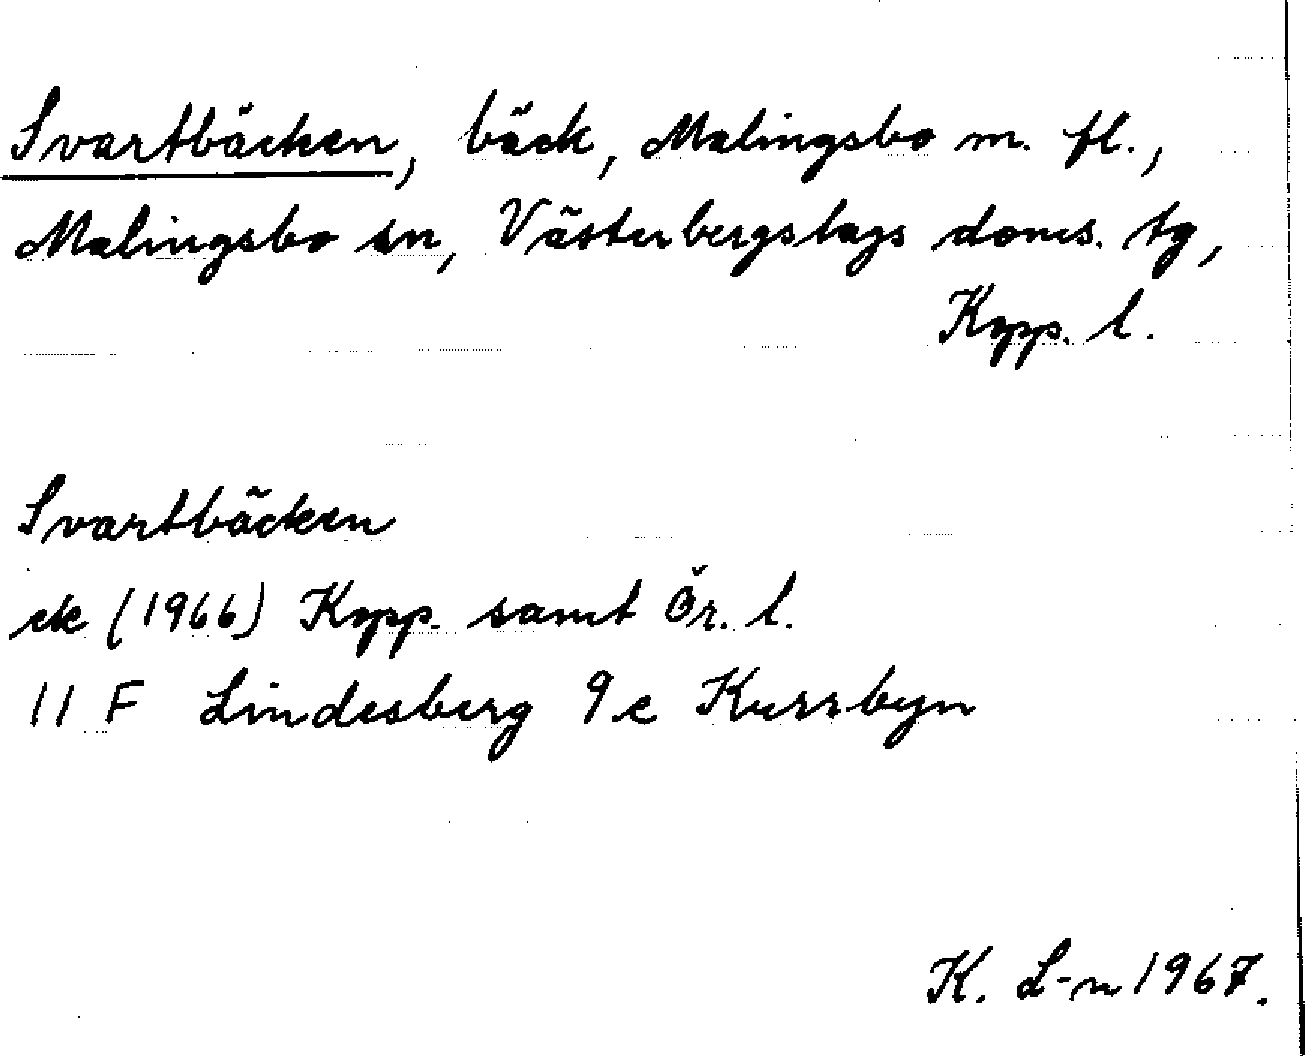 Svartbäcken, bäck, Malingsbo m. fl.,
Malingsbo sn, Västerbergslags doms. tg,
Kopp. l.
Svartbäcken
ek (1966) Kopp. samt Ör. l.
11 F Lindesberg 9 e Kursbyn
K. L-n 1967.